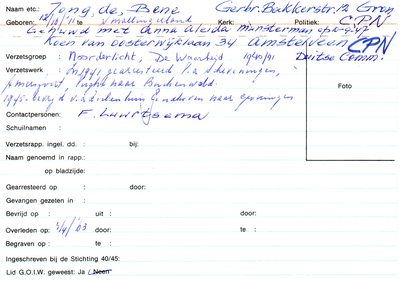 Naam etc.: Jong, de, Bene Gerbr. Bakkerstr. 12 Gron
Geboren: 12/10/'11 te Smallingerland Kerk: Politiek: CPN
Gehuwd met Anna Aleida Munsterman
Koen van Oosterwijklaan 34 Amstelveen CPN
Verzetsgroep : Noorderlicht, De Waarheid 1940/41 Duitse Comm.
Verzetswerk : in 1941 gearresteerd
naar Buchenwald.
1945 Eindhoven naar Groningen
Contactpersonen: F. Luurtsema
Schuilnaam :
Foto
Verzetsrapp. ingel. dd. : bij:
Naam genoemd in rapp.:
op bladzijde:
Gearresteerd op : door:
Gevangen gezeten in :
Bevrijd op : uit : door:
Overleden op: 5/4/'03 door: te :
Begraven op : te :
Ingeschreven bij de Stichting 40/45:
Lid G.O.I.W. geweest: Ja / Neen